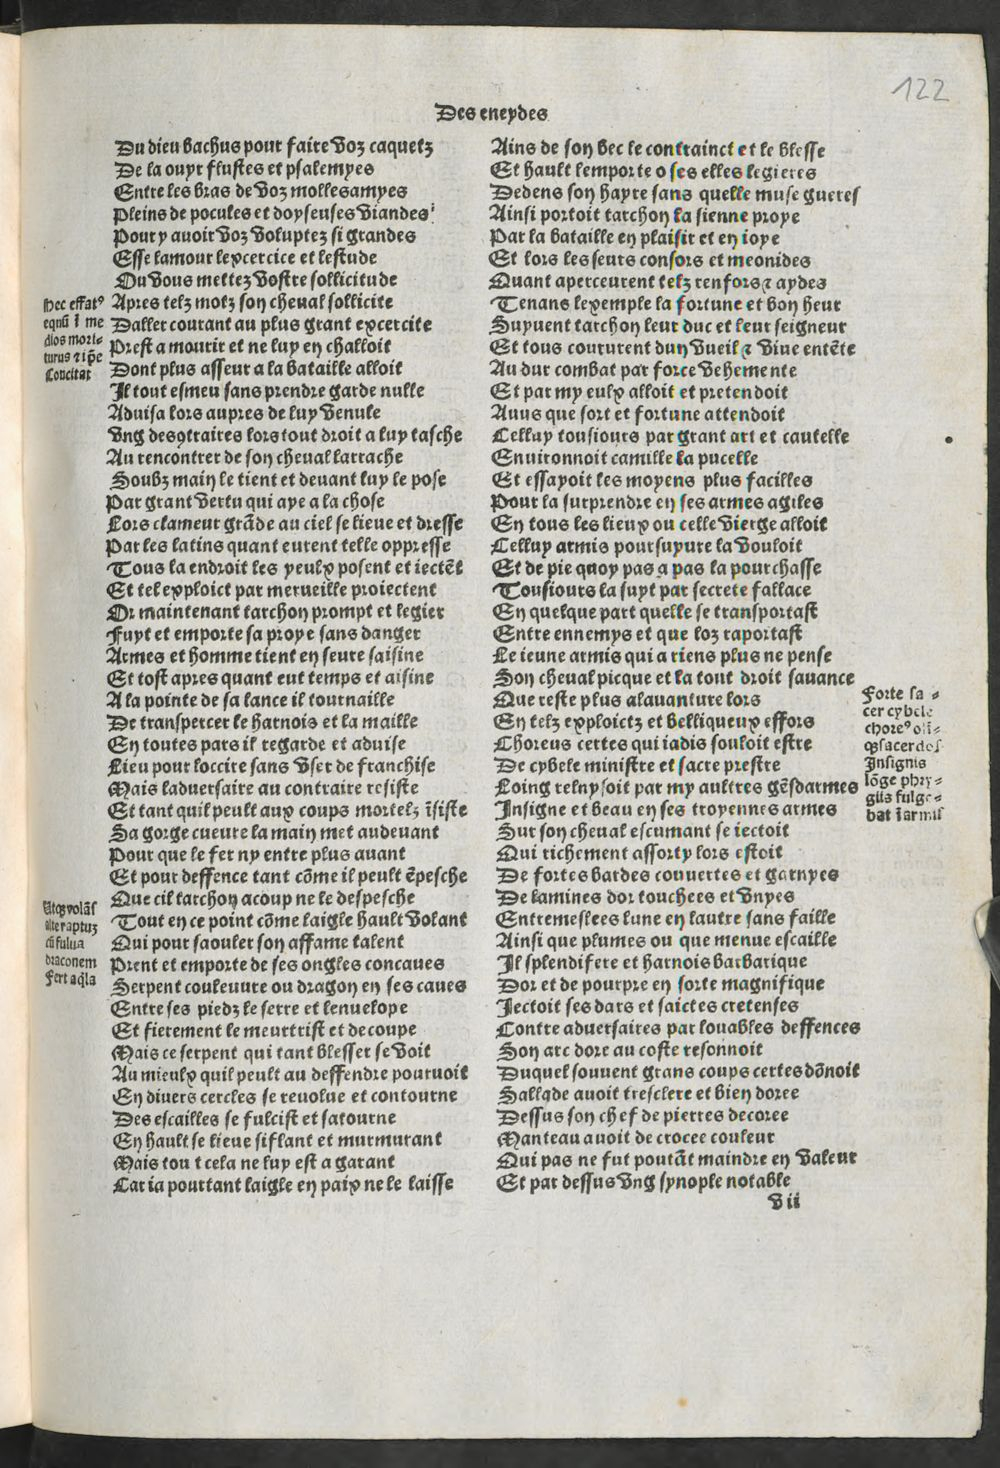 122
Des eneydes
Du dieu bachus pour faire voz caquetz
De la ouyr flustes et psalemyes
Entre les bras de voz mollesamyes
Pleins de pocules et doyseuses viandes
Pour y auoir voz voluptez si grandes
Esse lamour lexcercice et lestude
Ou vous mettez vostre sollicitude
Apres telz motz son cheual sollicite
Daller courant au plus grant excercite
Prest a mourir et ne luy en challoit
Dont plus asseur a la bataille alloit
Il tout esmeu sans prendre garde nulle
Aduisa lors aupres de luy venule
Vng des9traires lors tout droit a luy tasche
Au rencontrer de son cheual larrache
Soubz main le tient et deuant luy le pose
Par grant vertu qui aye a la chose
Lors clameur grãde au ciel se lieue et dresse
Par les latins quant eurent telle oppresse
Tous la endroit les yeulx posent et iectẽt
Et tel exploict par merueille proiectent
Or maintenant tarchon prompt et legier
Fuyt et emporte sa proye sans danger
Armes et homme tient en seure saisine
Et tost apres quant eut temps et aisine
A la pointe de sa lance il tournaille
De transpercer le harnois et la maille
En toutes pars il regarde et aduise
Lieu pour loccire sans vser de franchise
Mais laduersaire au contraire resiste
Et tant quil peult aux coups mortelz ĩsiste
Sa gorge cueure la main met audeuant
Pour que le fer ny entre plus auant
Et pour deffence tant cõme il peult ẽpesche
Que cil tarchon acoup ne le despesche
Tout en ce point cõme laigle hault volant
Qui pour saouler son affame talent
Prent et emporte de ses ongles concaues
Serpent couleuure ou dragon en ses caues
Entre ses piedz le serre et lenuelope
Et fierement le meurtrist et decoupe
Mais ce serpent qui tant blesser se voit
Au mieulx quil peult au deffendre pouruoit
En diuers cercles se reuolue et contourne
Des escailles se fulcist et satourne
En hault se lieue siflant et murmurant
Mais tou t cela ne luy est a garant
Car ia pourtant laigle en paix ne le laisse
Hec effat9
equũ ĩ me
dios mori-
turus ⁊ ip̃e
Concitat
Atqꝫ volãs
alte raptuꝫ
cũ fulua
draconem
Fert aq̃la
Ains de son bec le contrainct et le blesse
Et hault lemporte o ses elles legieres
Dedens son hayre sans quelle muse gueres
Ainsi portoit tarchon la sienne proye
Par la bataille en plaisir et en ioye
Et lors les seurs consors et meonides
Quant aperceurent telz renfors ⁊ aydes
Tenans lexemple la fortune et bon heur
Suyuent tarchon leur duc et leur seigneur
Et tous coururent dun vueil ⁊ viue entẽte
Au dur combat par force vehemente
Et par my eulx alloit et pretendoit
Auus que sort et fortune attendoit
Celluy tousiours par grant art et cautelle
Enuironnoit camille la pucelle
Et essayoit les moyens plus facilles
Pour la surprendre en ses armes agiles
En tous les lieux ou celle vierge alloit
Celluy armis poursuyure la vouloit
Et de pie quoy pas a pas la pourchasse
Tousiours la suyt par secrete fallace
En quelque part quelle se transportast
Entre ennemys et que loz raportast
Le ieune armis qui a riens plus ne pense
Son cheual picque et la tout droit sauance
Que reste plus alauanture lors
En telz exploictz et belliqueux effors
Choreus certes qui iadis souloit estre
De cybele ministre et sacre prestre
Loing reluysoit par my aultres gẽsdarmes
Insigne et beau en ses troyennes armes
Sur son cheual escumant se iectoit
Qui richement assorty lors estoit
De fortes bardes couuertes et garnyes
De lamines dor touchees et vnyes
Entremeslees lune en lautre sans faille
Ainsi que plumes ou que menue escaille
Il splendifere et harnois barbarique
Dor et de pourpre en sorte magnifique
Iectoit ses dars et saictes cretenses
Contre aduersaires par louables deffences
Son arc dore au coste resonnoit
Duquel souuent grans coups certes dõnoit
Sallade auoit tresclere et bien doree
Dessus son chef de pierres decoree
Manteau auoit de crocee couleur
Qui pas ne fut pourtãt maindre en valeur
Et par dessus vng synople notable
Forte sa-
cer cybele
chore9 olĩ-
qꝫ sacerdos
Insignis
lõge phry-
giis fulge-
bat ĩ armis
v ii